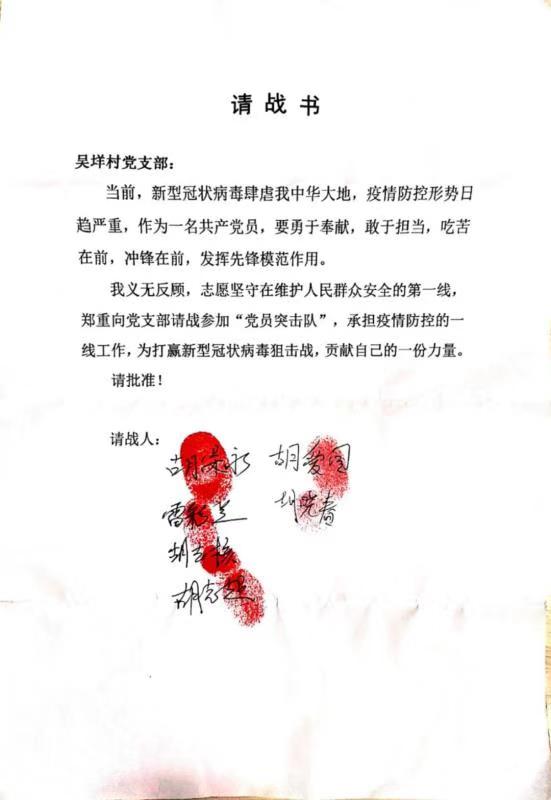 请战书
吴垟村党支部：
当前，新型冠状病毒肆虐我中华大地，疫情防控形势日
趋严重，作为一名共产党员，要勇于奉献，敢于担当，吃苦
在前，冲锋在前，发挥先锋模范作用。
我义无反顾，志愿坚守在维护人民群众安全的第一线，
郑重向党支部请战参加“党员突击队”，承担疫情防控的一
线工作，为打赢新型冠状病毒狙击战，贡献自己的一份力量。
请批准！
请战人：
胡爱国
胡晓春
胡志超